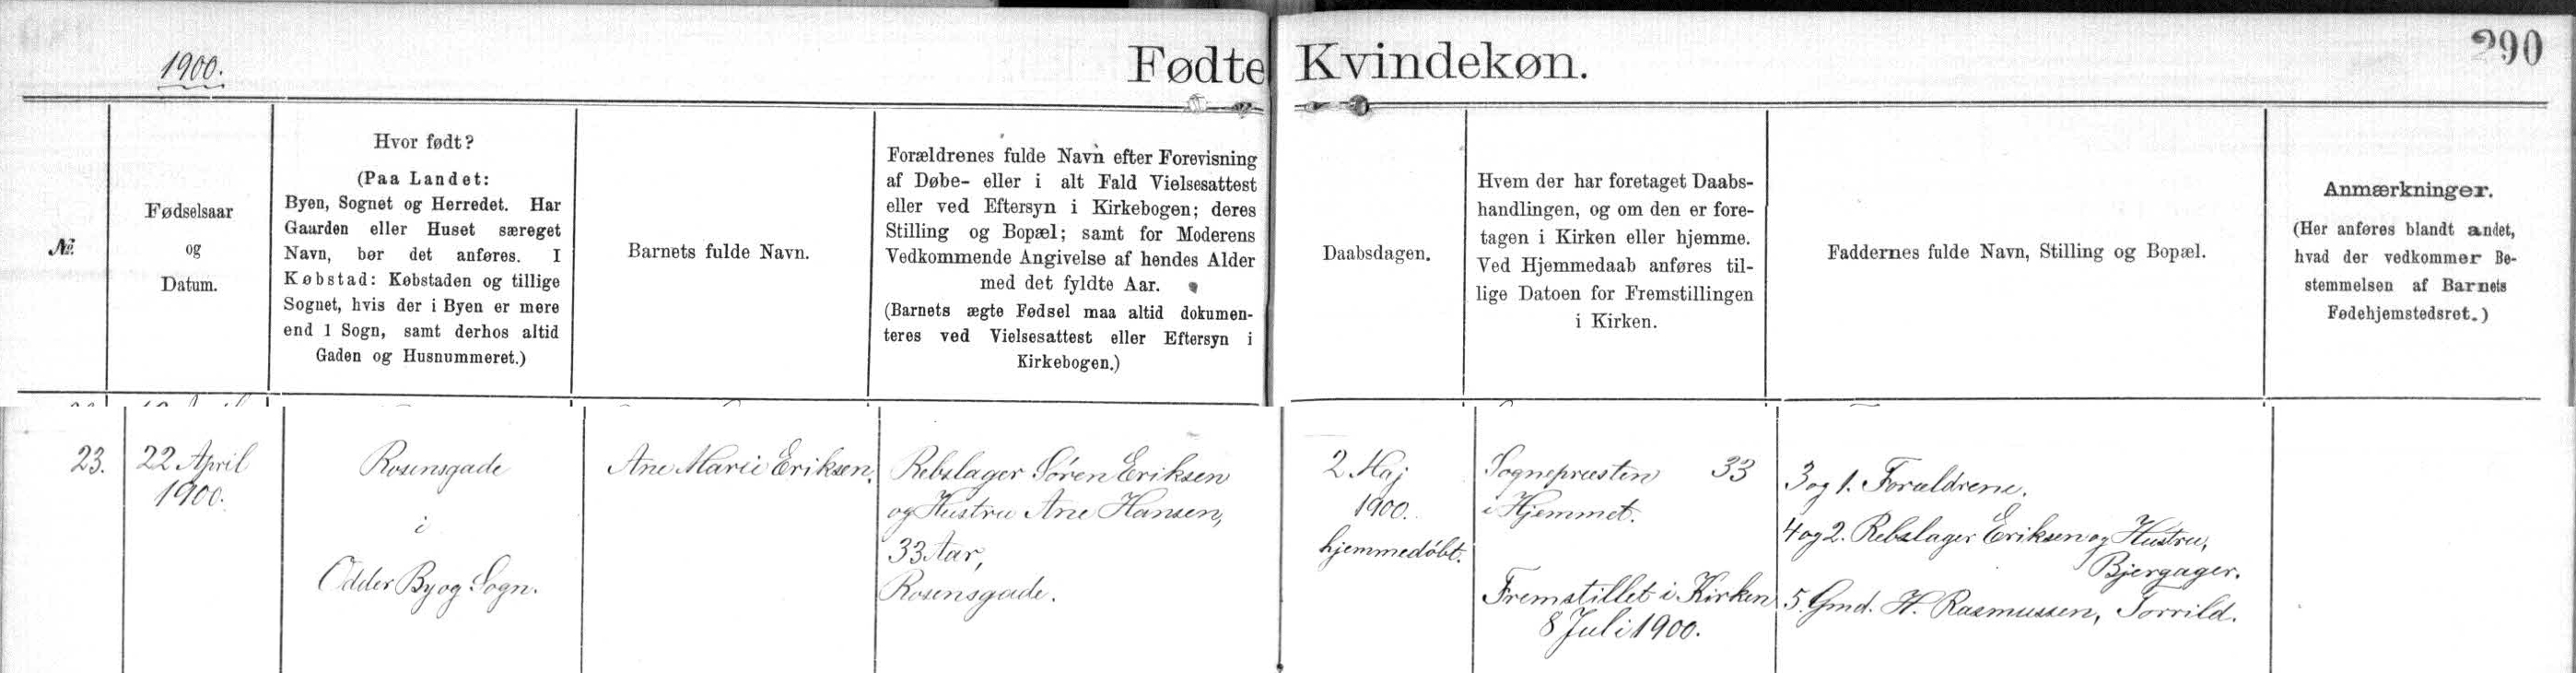 1900.
Fødte Kvindekøn.
290
№
Fødselsaar
og
Datum.
Hvor født?
(Paa Landet:
Byen, Sognet og Herredet. Har
Gaarden eller Huset særeget
Navn, bør det anføres. I
Købstad: Købstaden og tillige
Sognet, hvis der i Byen er mere
end 1 Sogn, samt derhos altid
Gaden og Husnummeret.)
Barnets fulde Navn.
Forældrenes fulde Navn efter Forevisning
af Døbe- eller i alt Fald Vielsesattest
eller ved Eftersyn i Kirkebogen; deres
Stilling og Bopæl; samt for Moderens
Vedkommende Angivelse af hendes Alder
med det fyldte Aar.
(Barnets ægte Fødsel maa altid dokumen-
teres ved Vielsesattest eller Eftersyn i
Kirkebogen.)
Daabsdagen.
Hvem der har foretaget Daabs-
handlingen, og om den er fore-
tagen i Kirken eller hjemme.
Ved Hjemmedaab anføres til-
lige Datoen for Fremstillingen
i Kirken.
Faddernes fulde Navn, Stilling og Bopæl.
Anmærkninger.
(Her anføres blandt andet,
hvad der vedkommer Be-
stemmelsen af Barnets
Fødehjemstedsret.)
23.
22 April
1900.
Rosensgade
i
Odder By og Sogn.
Ane Marie Eriksen.
Rebslager Søren Eriksen
og Hustru Ane Hansen,
33 Aar,
Rosensgade.
2 Maj
1900.
hjemmedøbt.
Sognepræsten 33
i Hjemmet.
Fremstillet i Kirken
8 Juli 1900.
3 og 1. Forældrene.
4 og 2. Rebslager Eriksen og Hustru,
Bjergager.
5. Gmd. H. Rasmussen, Torrild.